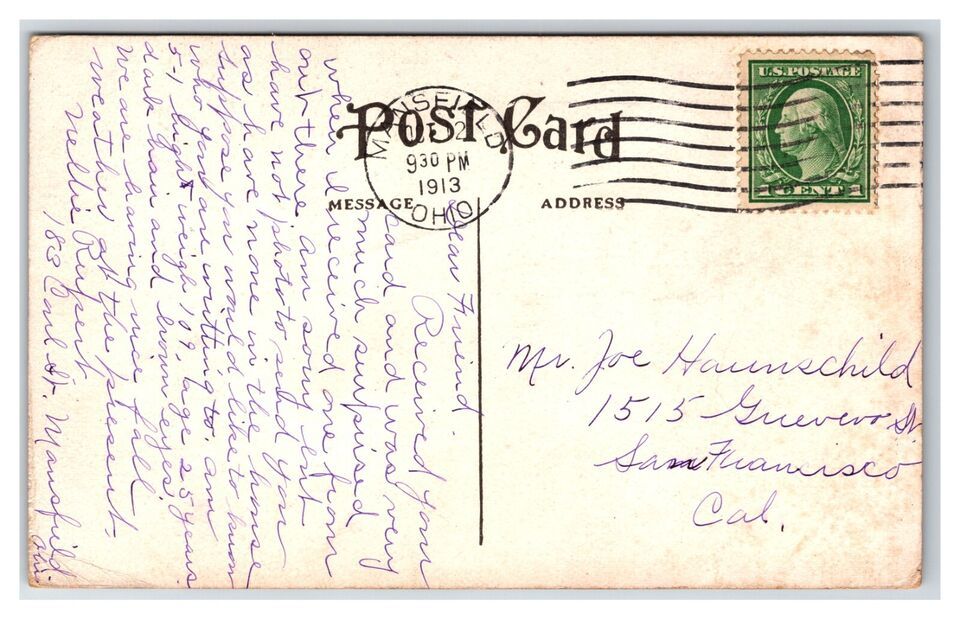 Post Card
MANSFIELD
2
930 PM
1913
OHIO
U.S. POSTAGE
1 CENT 1
MESSAGE
ADDRESS
Dear Friend.
Received your
card and was very
much surpised
when I received one from
out there am sorry but
have not photo to send you
as have none in the house
suppose you would like to know
who you are writting to. am
5-1 hight weigh 109- age 25 years
dark hair and brown eyes.
we are having nice fall
weather at the present.
Nellie Rupert
183 Earl St Mansfield
Ohio
Mr. Joe Haunschild
1515 Guerero St
San Francisco
Cal.